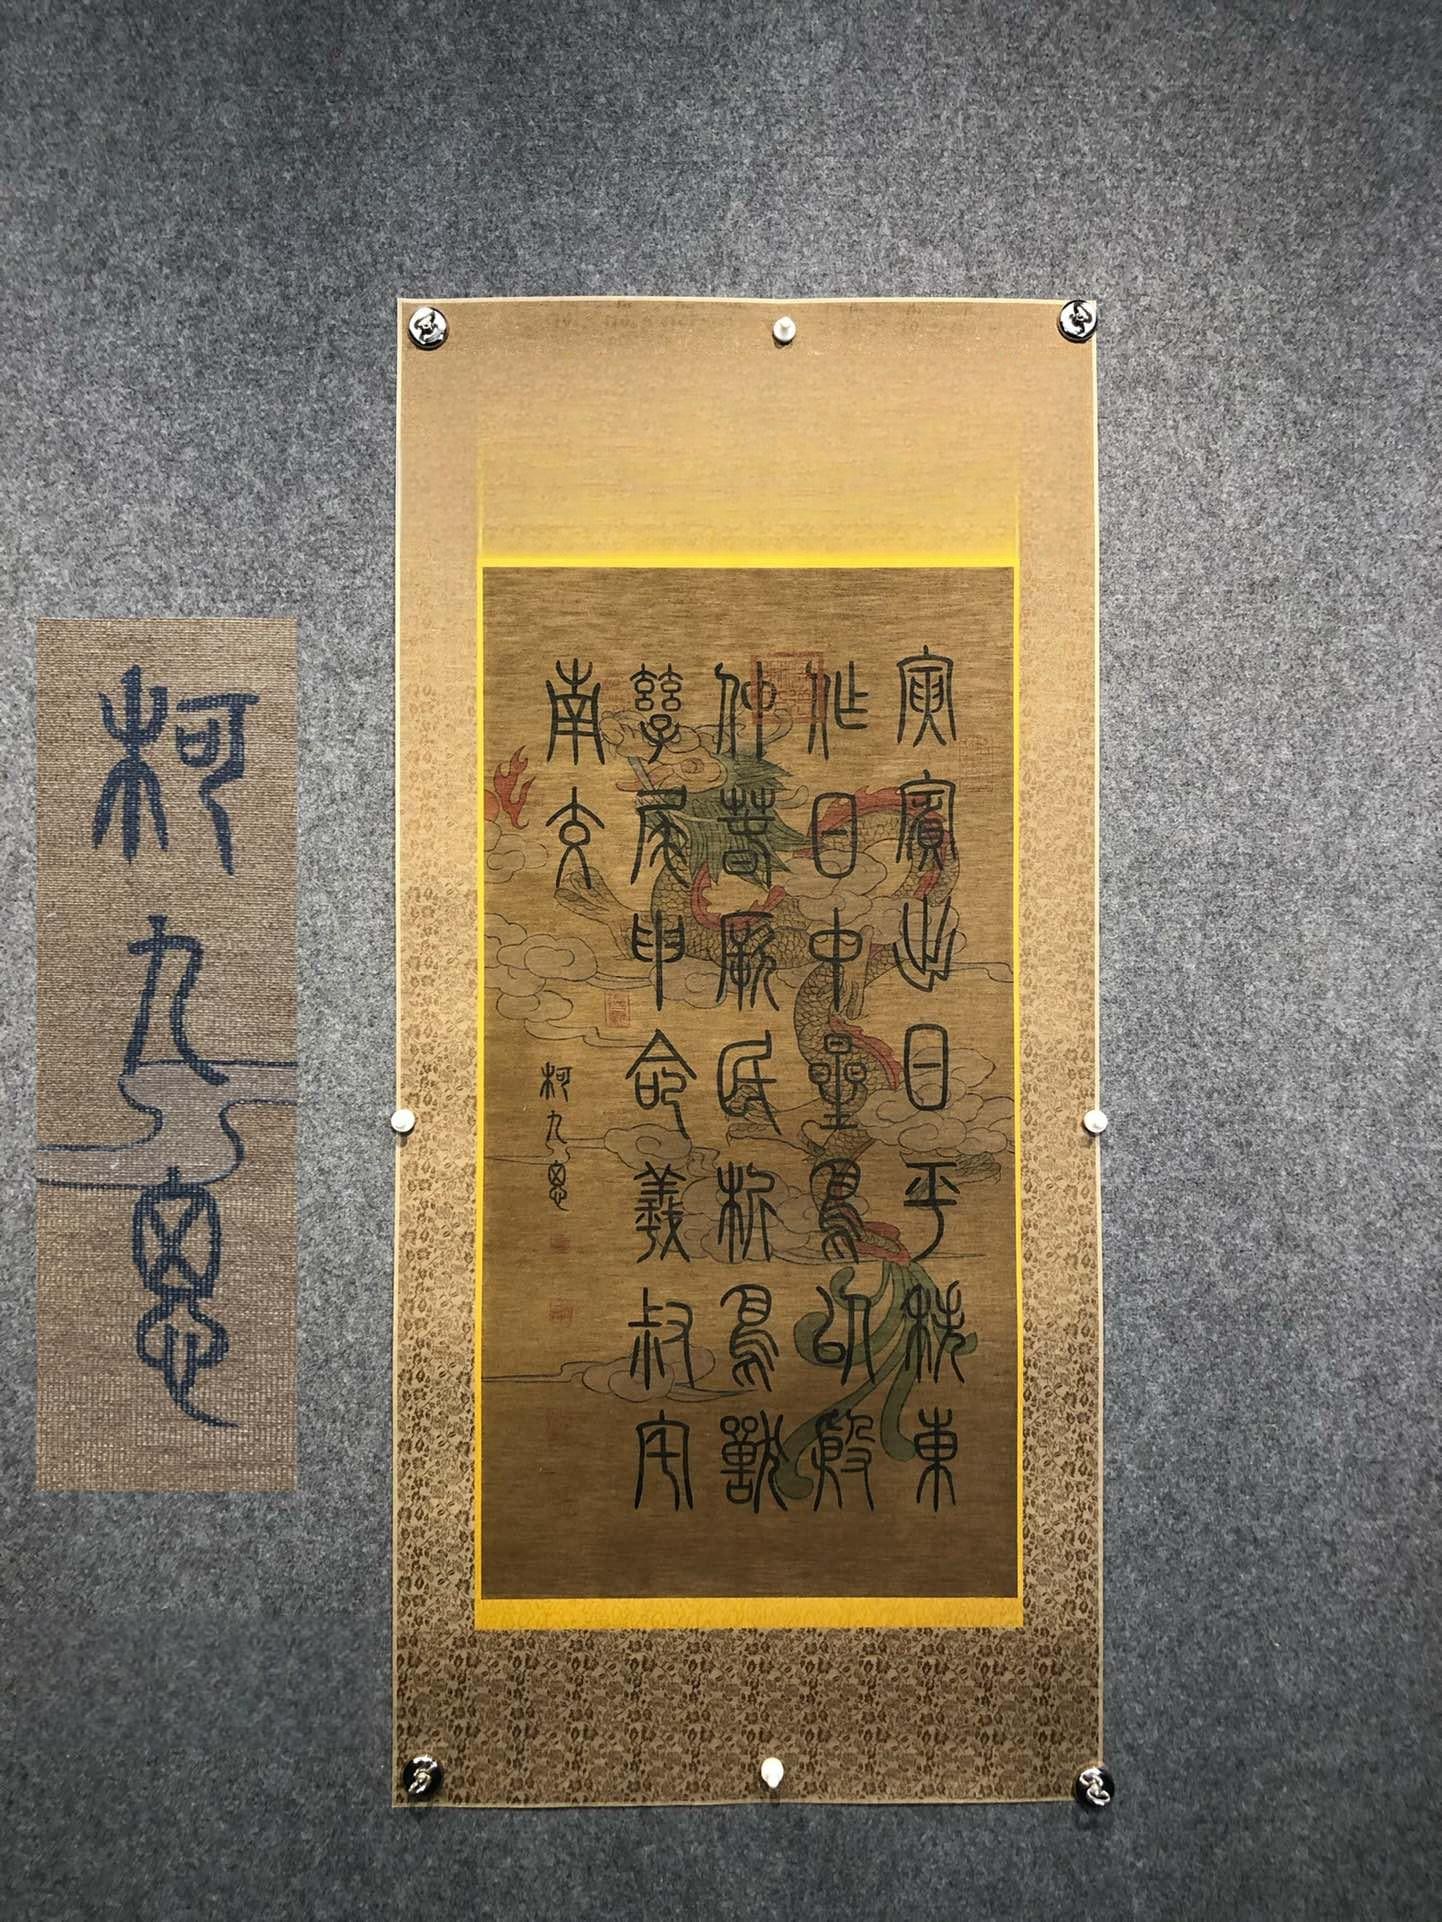 寅賓出日平秩東
作日中星鳥以殷
仲春厥民析鳥獸
孳尾申命羲叔宅
南交
柯九思
柯九思